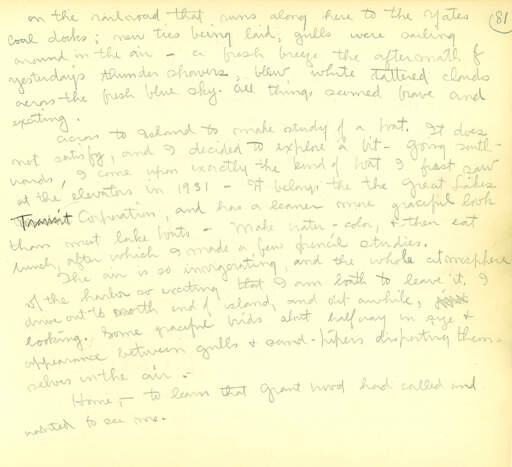 81
on the railroad that runs along here to the Yates
coal docks; new ties being laid; gulls were sailing
around in the air – a fresh breeze the aftermath of
yesterdays thunder showers, blew white tattered clouds
across the fresh blue sky. All things seemed brave and
exciting.
Across to Island to make study of a boat. It does
not satisfy, and I decided to explore a bit – going south-
wards, I come upon exactly the kind of boat I first saw
at the elevators in 1931 – It belongs to the Great Lakes
Transit Corporation, and has a leaner more graceful look
than most lake boats – Make water-color, & then eat
lunch, after which I made a few pencil studies.
The air is so invigorating, and the whole atmosphere
of the harbor so exciting that I am loath to leave it. I
drive out to north end of island, and sit awhile,
looking. Some graceful birds about halfway in size &
appearance between gulls & sand-pipers disporting them-
selves in the air. –
Home, – to learn that Grant Wood had called and
wanted to see me.